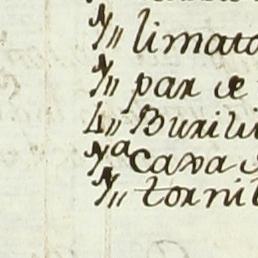 1// limato
1// par de
4// Burili
1ª Caxa d
1// torni